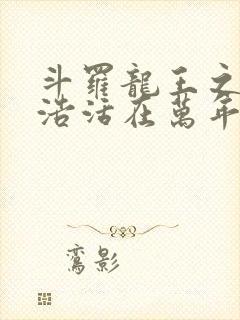 斗羅龍王之
浩活在萬年
鸞影